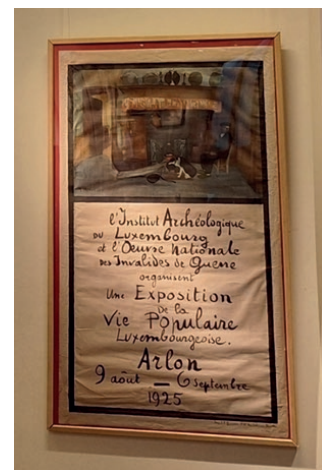 l'Institut Archéologique
du Luxembourg
et l'Oeuvre Nationale
des Invalides de Guerre
organisent
Une Exposition
de la
Vie Populaire
Luxembourgeoise.
Arlon
9 août — 6 Septembre
1925